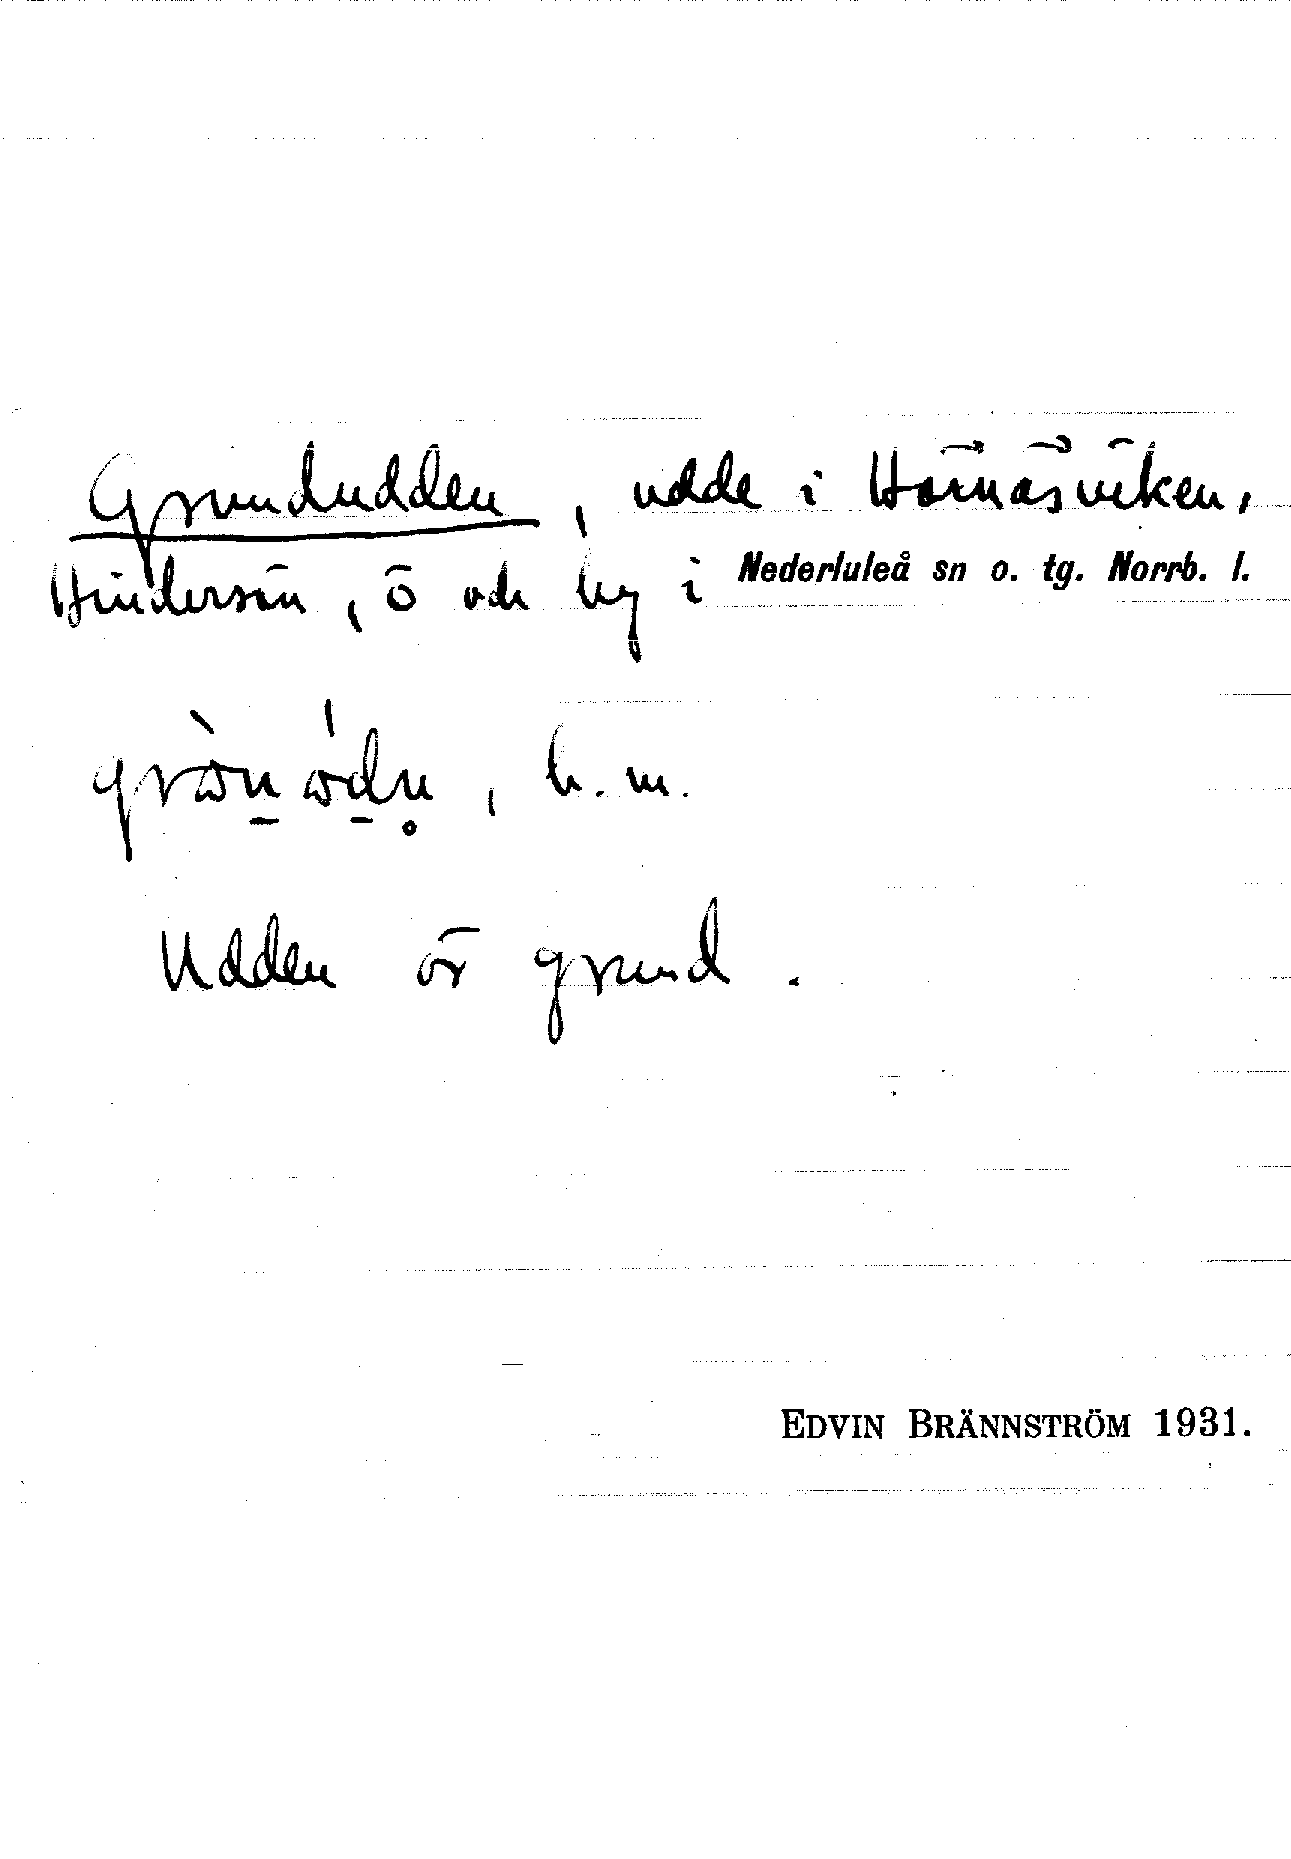 Grundudden, udde i Hörnäsviken,
Hindersön, ö och by i Nederluleå sn o. tg. Norrb. l.
b. m.
Udden är grund.
EDVIN BRÄNNSTRÖM 1931.